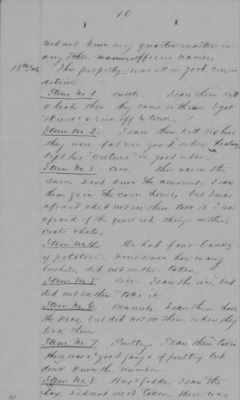 10
did not know any quartermaster or
any other officers names.
The property was all in good con-
dition
Item No 1 cattle. I saw them kill
2 head, then they came in there I got
& run off to town.
Item No 2. I saw them kill six hogs
they were fat in good order
kept his in good order.
Item No 3 corn. There was in the
barn, dont know the amount, I saw
them from the corn house, but I was
afraid & did not see them take it I was
afraid of the guns and things in their
coats
Item No 4. He had four banks
of potatoes. Dont know how many
bushels, did not see them taken.
Item No 5. rice. I saw the rice but
did not see them take it.
Item No 6. Peanuts. I saw them have
the peas, but did not see them when they
took them.
Item No 7. Poultry. I saw them take
There was a good gang of poultry but
dont know the number.
Item No 8. Hay & fodder. I saw the
hay, did not see it taken, there was